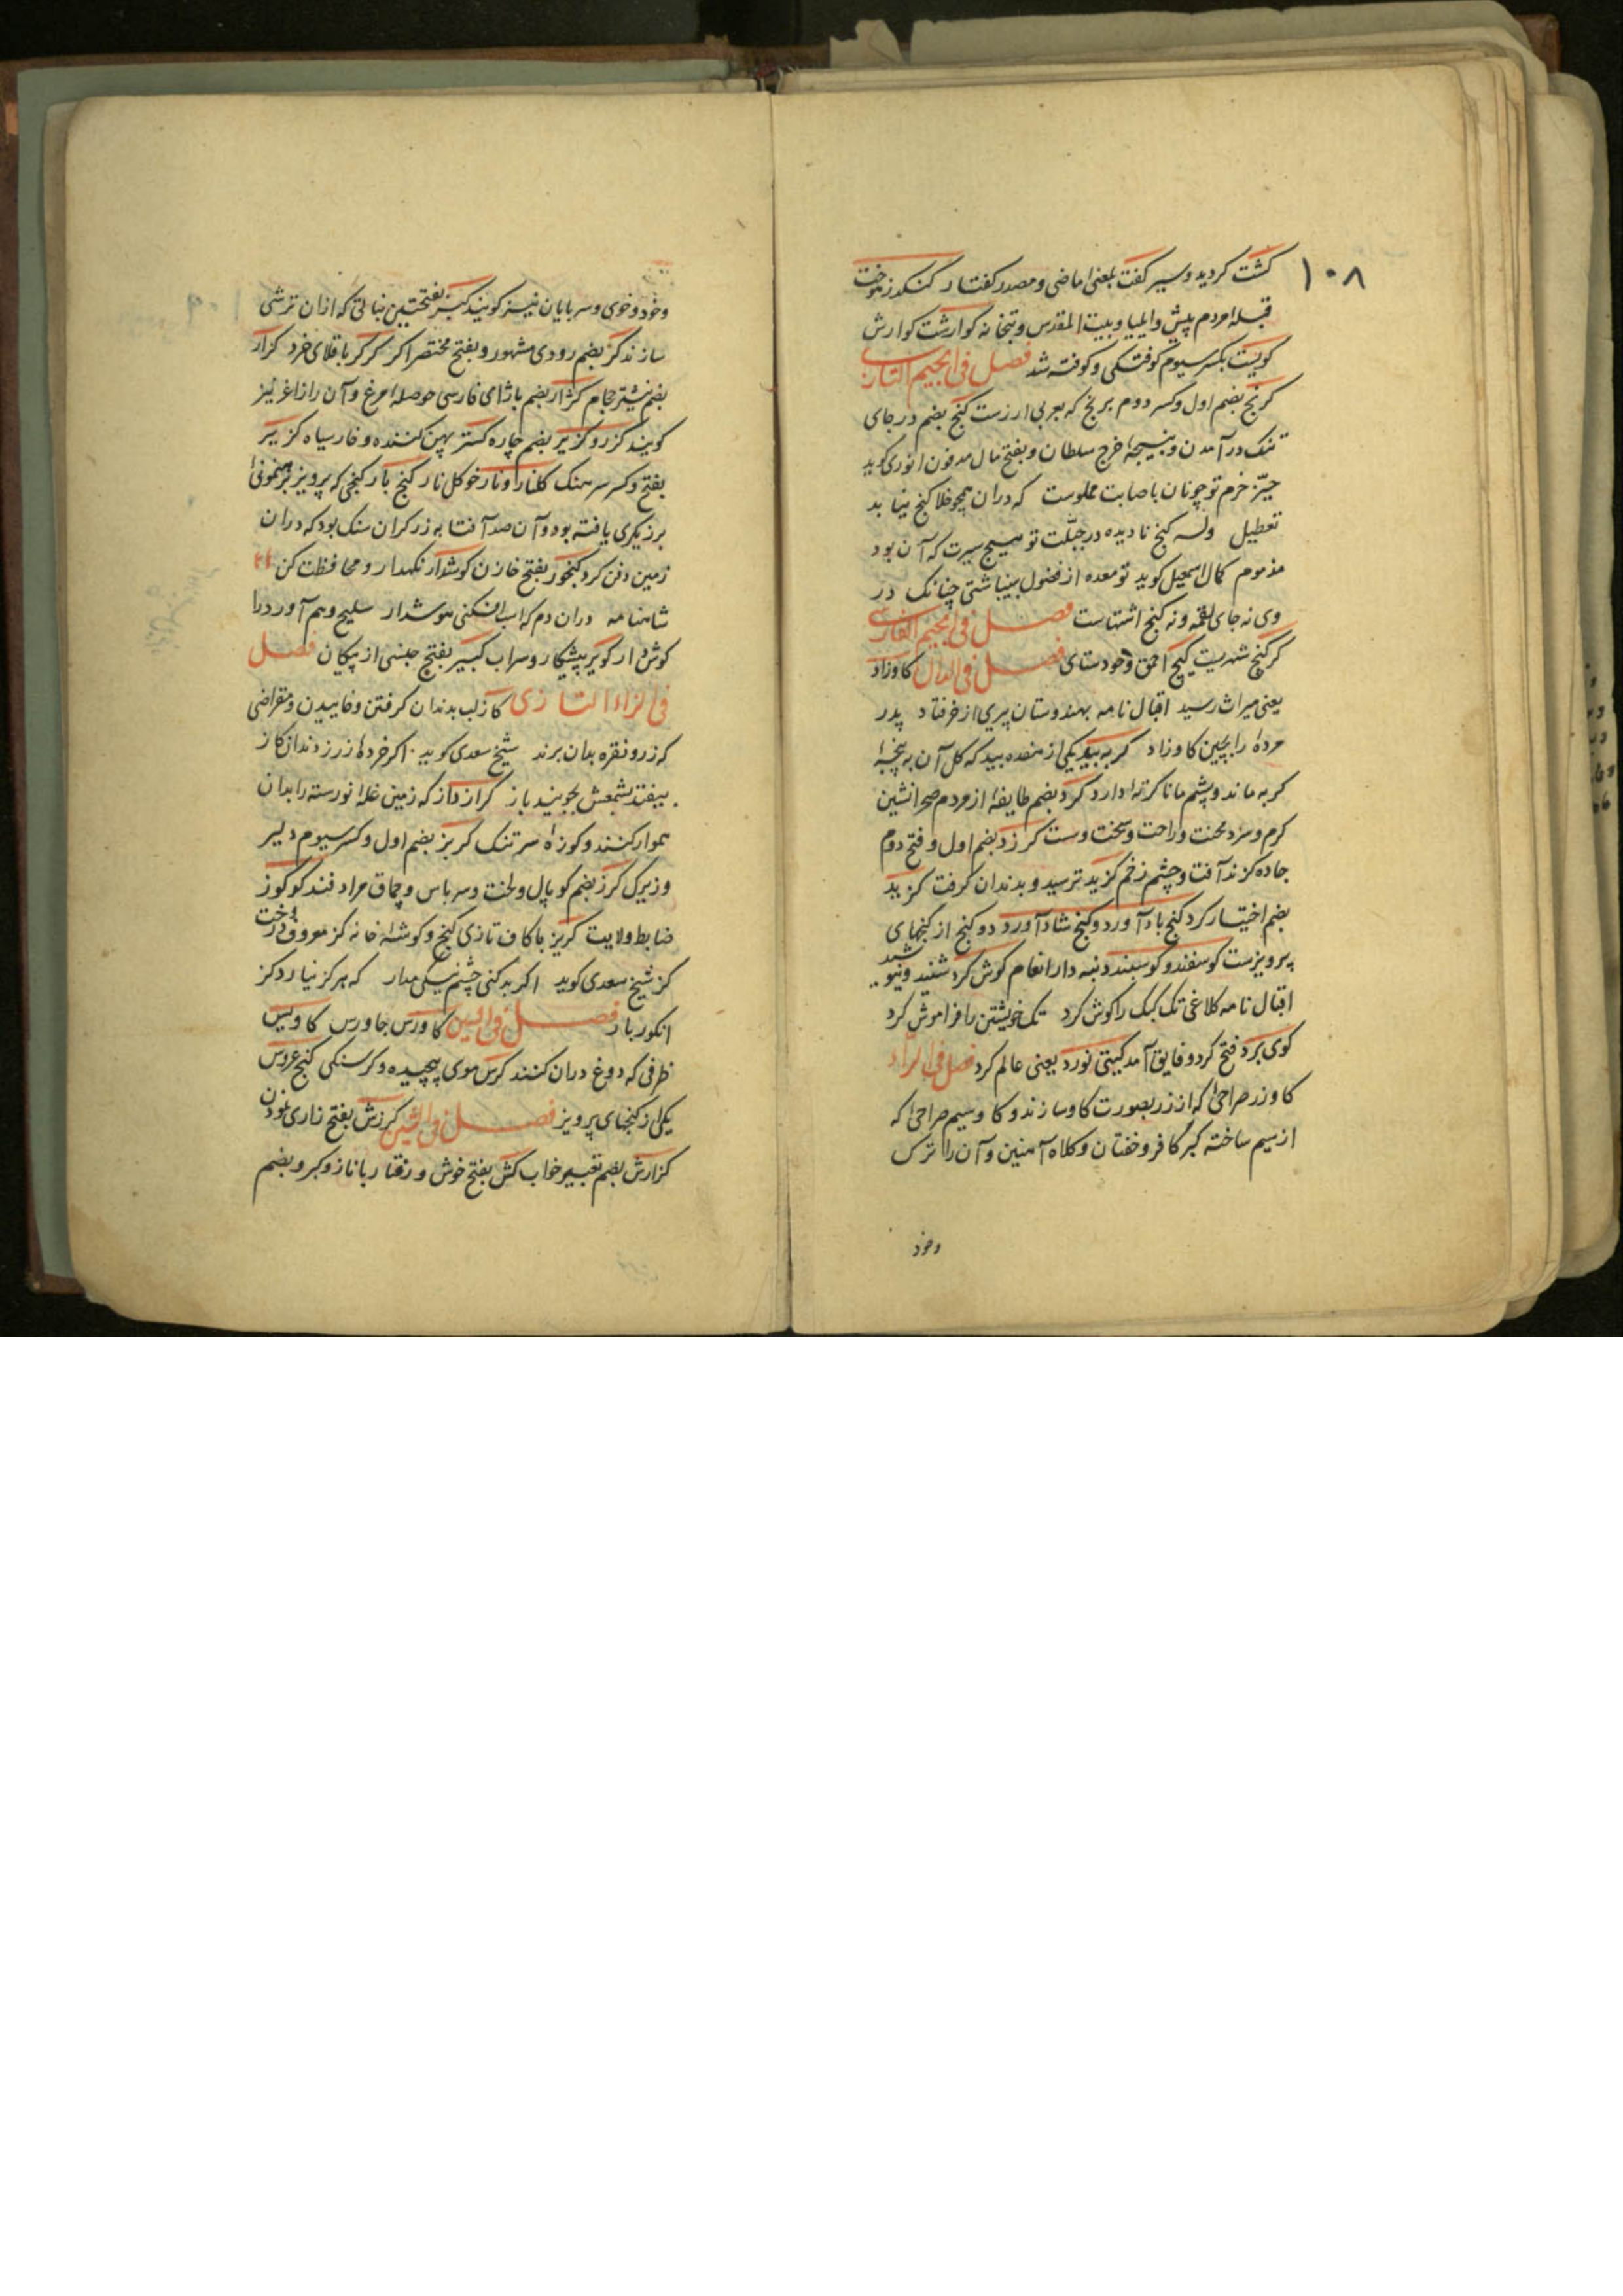 ۱۰۸
کشت کردید و سیر کفت بلغی ماضی و مصدر کفتار کنکدزهوخت
قبله مردم پیش و ایلیا و بیت المقدس و بتخانه کوارشت کوارش
کویست بکسر سیوم کوفتکی و کوفته شد فصل فی الجیم التازی
کرنج بضم اول و کسر دوم برنج که بعربی ارزست کنج بضم در جای
تنک در آمدن و نتیجهٔ خرج سلطان و بفتح مال مدفون انوری کوید
حیز خرم تو چونان باصابت مملوست که دران همچو خلا کنج نیابد
تعطیل وله کنج نادیده در جبلّت تو هیچ سیرت که آن بود
مذموم کمال اسمعیل کوید تو معده از فضول بینباشتی چنانک در
وی نه جای لقمه و نه کنج اشتهاست فصل فی الجیم الفارسی
کرکنج شهریست کیج احمق و خودستای فصل فی الدال کاوزاد
یعنی میراث رسید اقبال نامه بهندوستان پیری از خر فتاد پدر
مردهٔ را بچین کاو زاد کربه بید یکی از هفده بید که کل آن به پنجهٔ
کربه ماند و پشم مانا کرتهٔ دارد کرد بضم طایفهٔ از مردم صحرانشین
کرم و سرد محنت و راحت و سخت و سست کرزد بضم اول و فتح دوم
جاده کزند آفت و چشم زخم کزید ترسید و بدندان کرفت کزید
بضم اختیار کرد کنج بادآورد و کنج شادآورد دو کنج از کنجهای
پرویزست کوسفند و کوسبند دنبه دار انعام کوش کرد شنید و نیوشید
اقبال نامه کلاغی تک کبک را کوش کرد تک خویشتن را فراموش کرد
کوی برد فتح کرد و فایق آمد کیتی نورد یعنی عالم کرد فصل فی الراء
کاو زر صراحی که از زر بصورت کاو سازند و کاو سیم صراحی که
از سیم ساخته کبر کافر و خفتان و کلاه آهنین و آن را ترک
وخود
وخود و خوی و سربایان نیز کویند کبر بفتحتین نباتی که ازان ترشی
سازند کر بضم رودی مشهور و بفتح مختصر اکر کرکر باقلای خرد کزار
بضم نیشتر حجام کژار بضم با ژای فارسی حوصلهٔ مرغ و آن را زاغر نیز
کویند کزر و کزیر بضم چاره کستر پهن کننده و خار سیاه کزیر
بفتح و کسر سرهنک کلنار و نارخو کل نار کنج بار کنجی که پرویز برهنمونی
برزیکری یافته بود و آن صد آفتابه زر کران سنک بود که دران
زمین دفن کرد کنجور بفتح خازن کوشدار نکهدار و محافظت کن
شاهنامه دران دم که اسب افکنی هوشدار سلیح و هم آورد را
کوش دار کویر پیشکار و سراب کیبر بفتح جنسی از پیکان فصل
فی الزاء التازی کاز لب بدندان کرفتن و خاییدن و مقراضی
که زر و نقره بدان برند شیخ سعدی کوید اکر خرده زر ز دندان کاز
بیفتد بشمعش بجویند باز کراز داز که زمین غلهٔ نورسته را بدان
هموار کنند و کوزهٔ سر تنک کربز بضم اول و کسر سیوم دلیر
و زیرک کرز بضم کوپال و لخت و سرپاس و چماق مرادفند کو کوز
ضابط ولایت کریز با کاف تازی کنج و کوشهٔ خانه کز معروف و درخت
کز شیخ سعدی کوید اکر بد کنی چشم نیکی مدار که هرکز نیارد کز
انکور بار فصل فی السین کاورس جاورس کاولیس
ظرفی که دوغ دران کنند کرس موی پیچیده و کرسنکی کنج عروس
یکی از کنجهای پرویز فصل فی الشین کرزش بفتح زاری نمودن
کزارش بضم تعبیر خواب کش بفتح خوش و رفتار با ناز و کبر و بضم